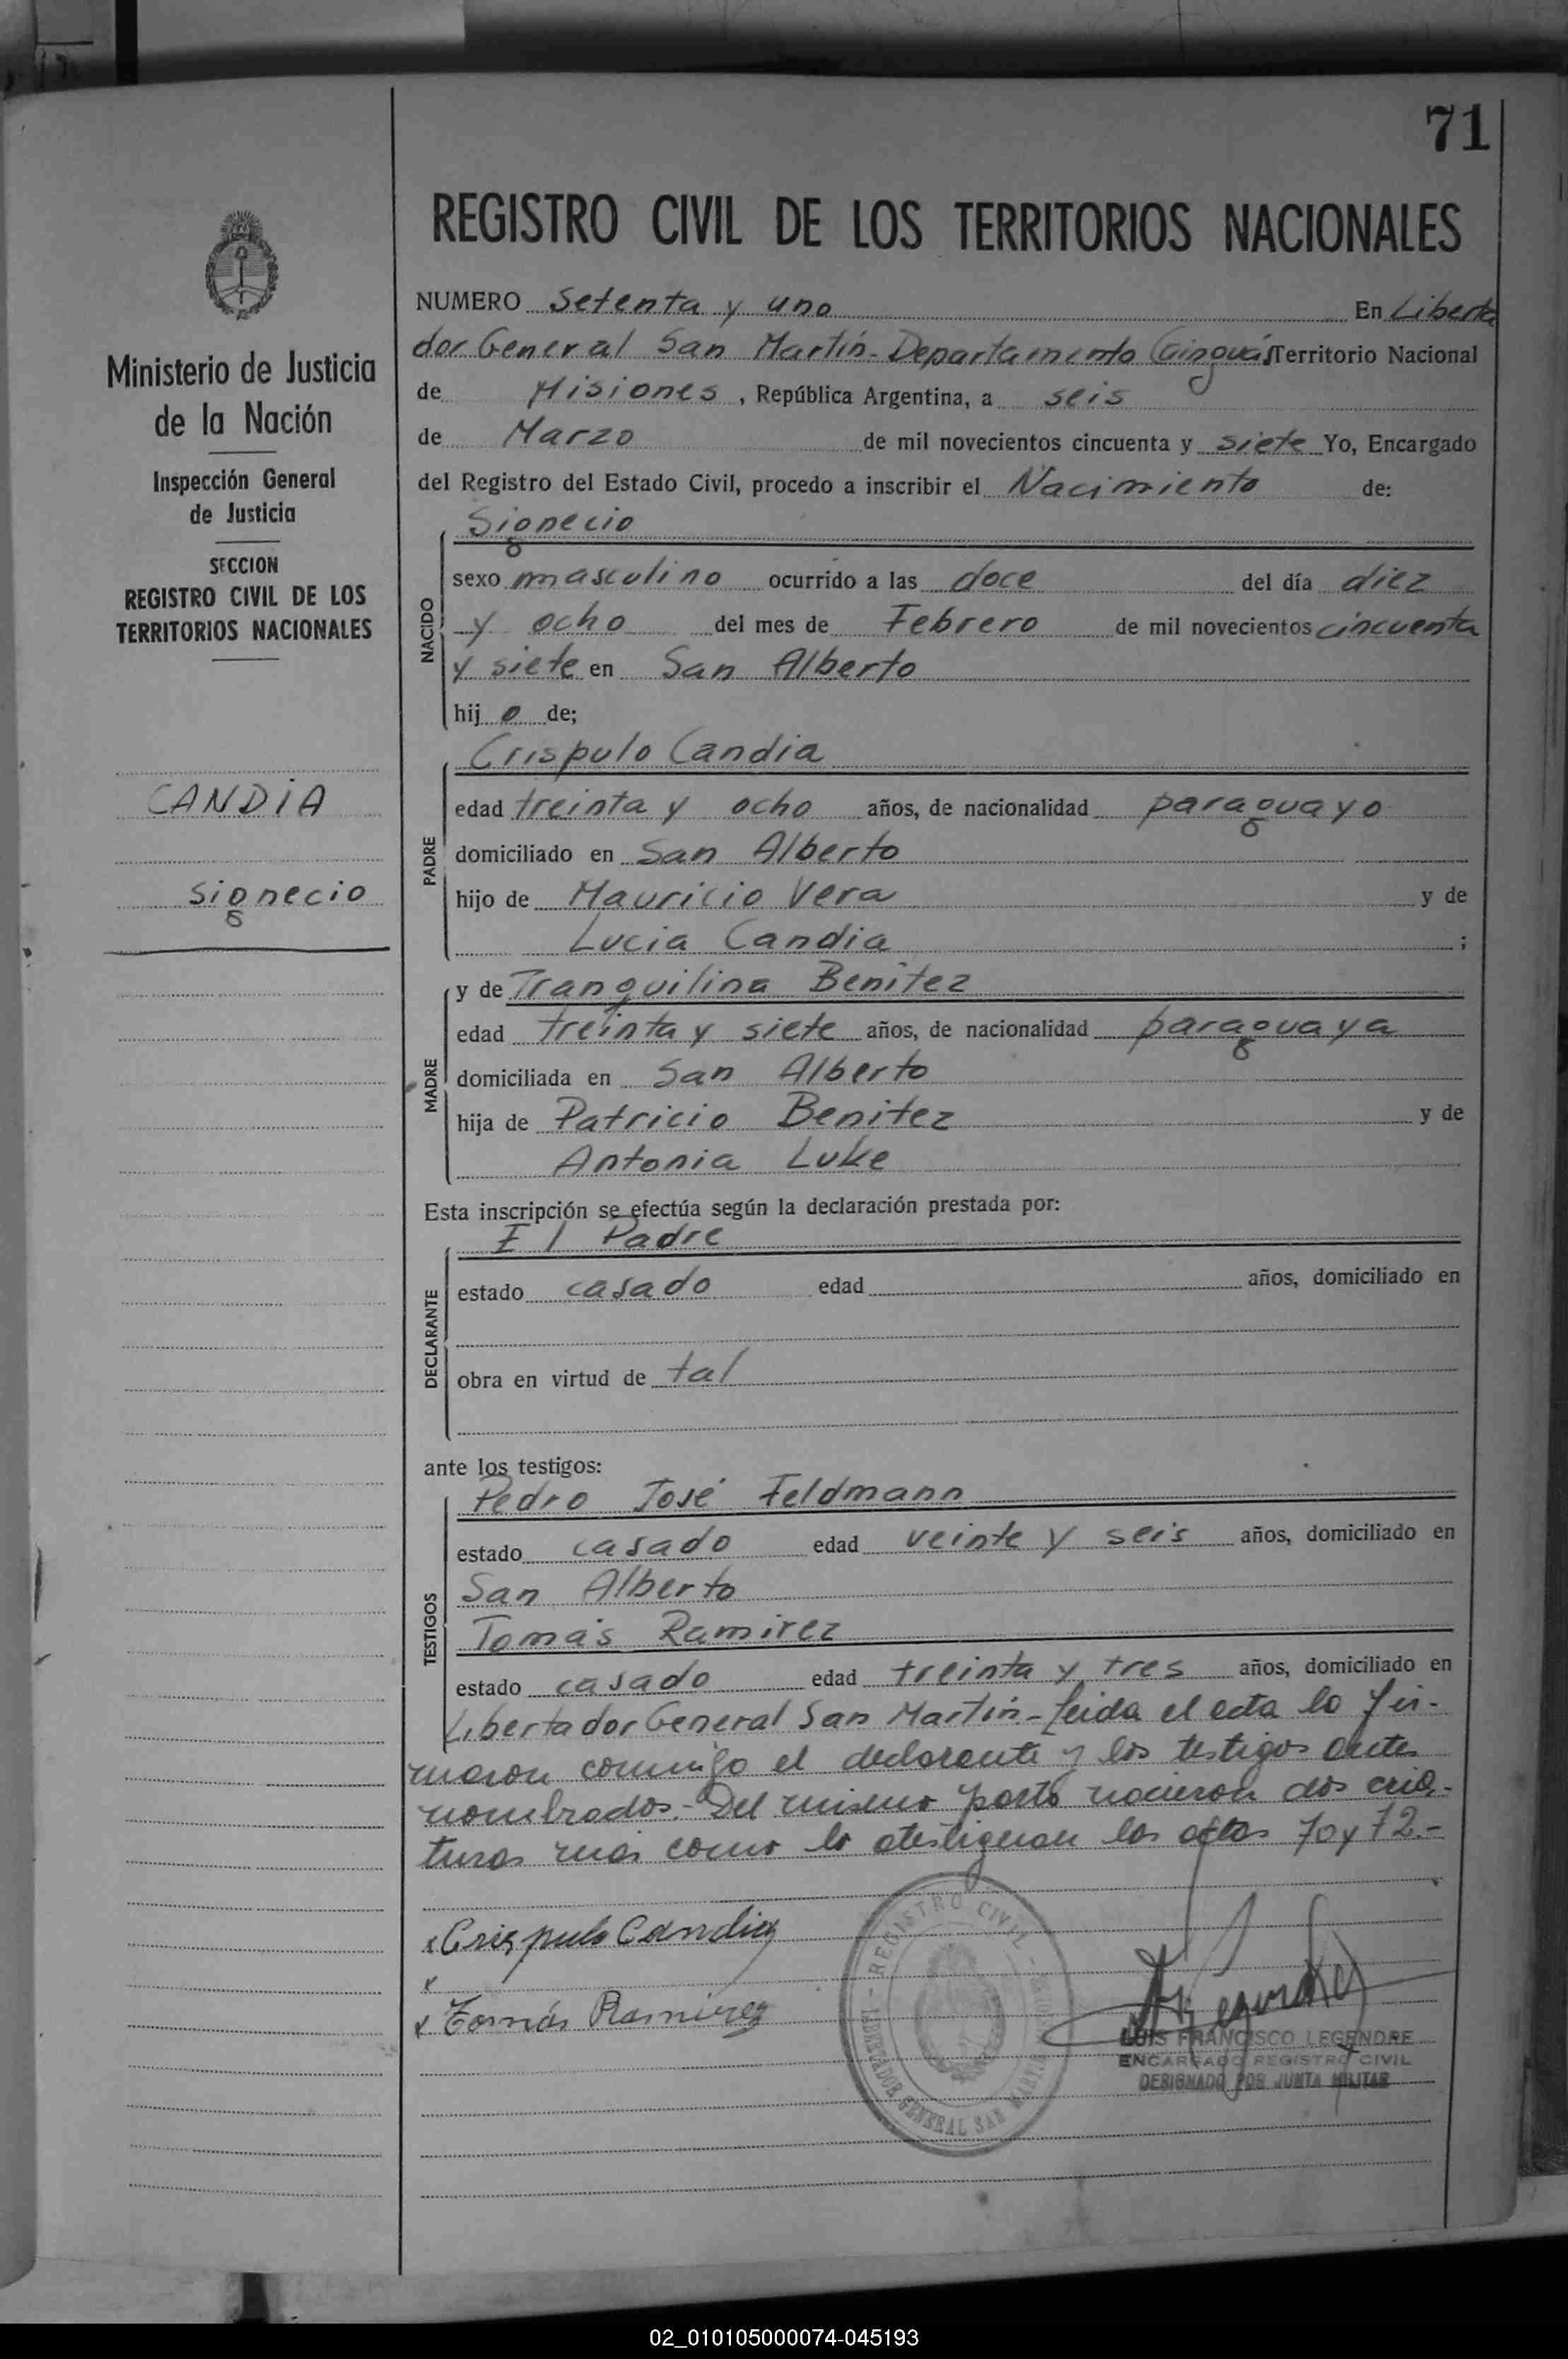 71
REGISTRO CIVIL DE LOS TERRITORIOS NACIONALES
Ministerio de Justicia
de la Nación
Inspección General
de Justicia
SECCION
REGISTRO CIVIL DE LOS
TERRITORIOS NACIONALES
CANDIA
Signecio
NUMERO Setenta y uno En Liberta
dor General San Martín - Departamento Cainguás Territorio Nacional
de Misiones, República Argentina, a seis
de Marzo de mil novecientos cincuenta y siete Yo, Encargado
del Registro del Estado Civil, procedo a inscribir el Nacimiento de:
NACIDO
Signecio
sexo masculino ocurrido a las doce del día diez
y ocho del mes de Febrero de mil novecientos cincuenta
y siete en San Alberto
hijo de;
PADRE
Crispulo Candia
edad treinta y ocho años, de nacionalidad paraguayo
domiciliado en San Alberto
hijo de Mauricio Vera y de
Lucia Candia ;
MADRE
y de Tranquilina Benitez
edad treinta y siete años, de nacionalidad paraguaya
domiciliada en San Alberto
hija de Patricio Benitez y de
Antonia Luke
Esta inscripción se efectúa según la declaración prestada por:
DECLARANTE
El Padre
estado casado edad años, domiciliado en
obra en virtud de tal
ante los testigos:
TESTIGOS
Pedro José Feldmann
estado casado edad veinte y seis años, domiciliado en
San Alberto
Tomás Ramirez
estado casado edad treinta y tres años, domiciliado en
Libertador General San Martín.- Leida el acta la fir-
maron conmigo el declarante y los testigos antes
nombrados.- Del mismo parto nacieron dos cria-
turas mas como lo atestiguan las actas 70 y 72.-
x Crispulo Candia
x
x Tomás Ramirez
REGISTRO CIVIL
LIBERTADOR GENERAL SAN MARTIN
LUIS FRANCISCO LEGENDRE
ENCARGADO REGISTRO CIVIL
DESIGNADO POR JUNTA MILITAR
02_010105000074-045193